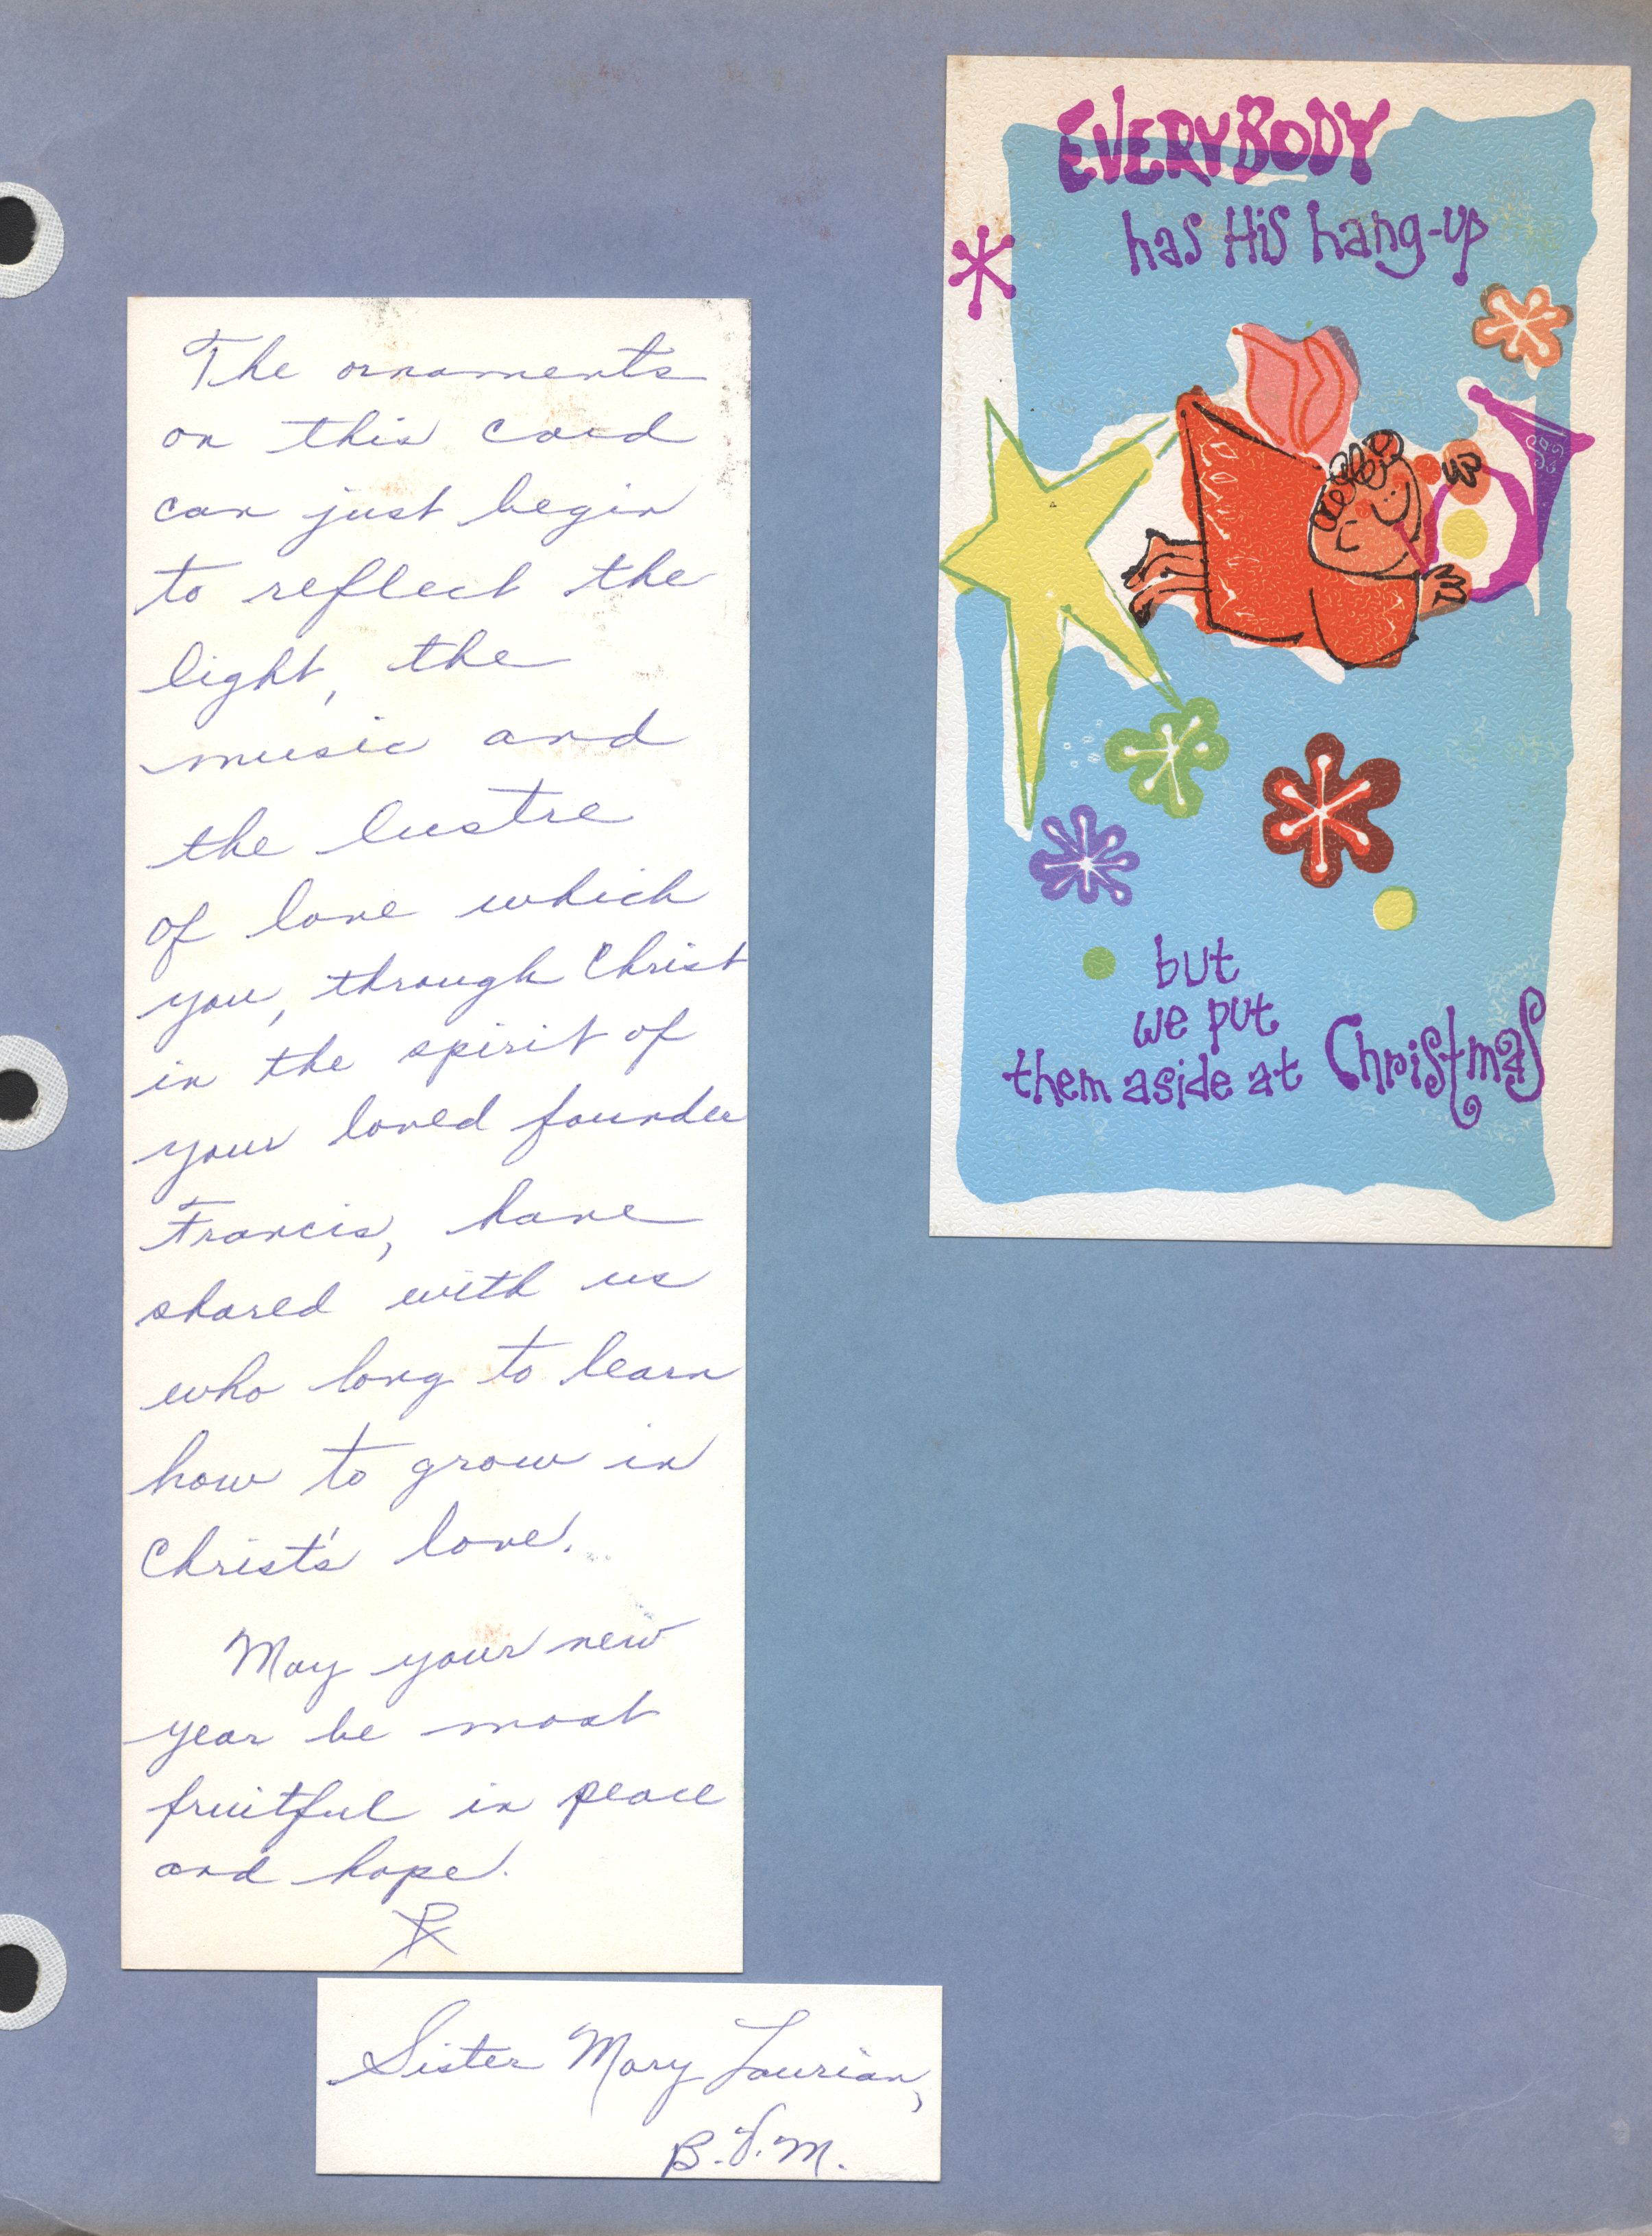 The ornaments
on this card
can just begin
to reflect the
light, the
music and
the lustre
of love which
you, through Christ
in the spirit of
your loved founder
Francis, have
shared with us
who long to learn
how to grow in
Christ's love.
May your new
year be most
fruitful in peace
and hope.
Sister Mary Laurian,
B.V.M.
EVERYBODY
has His hang-up
but
we put
them aside at Christmas